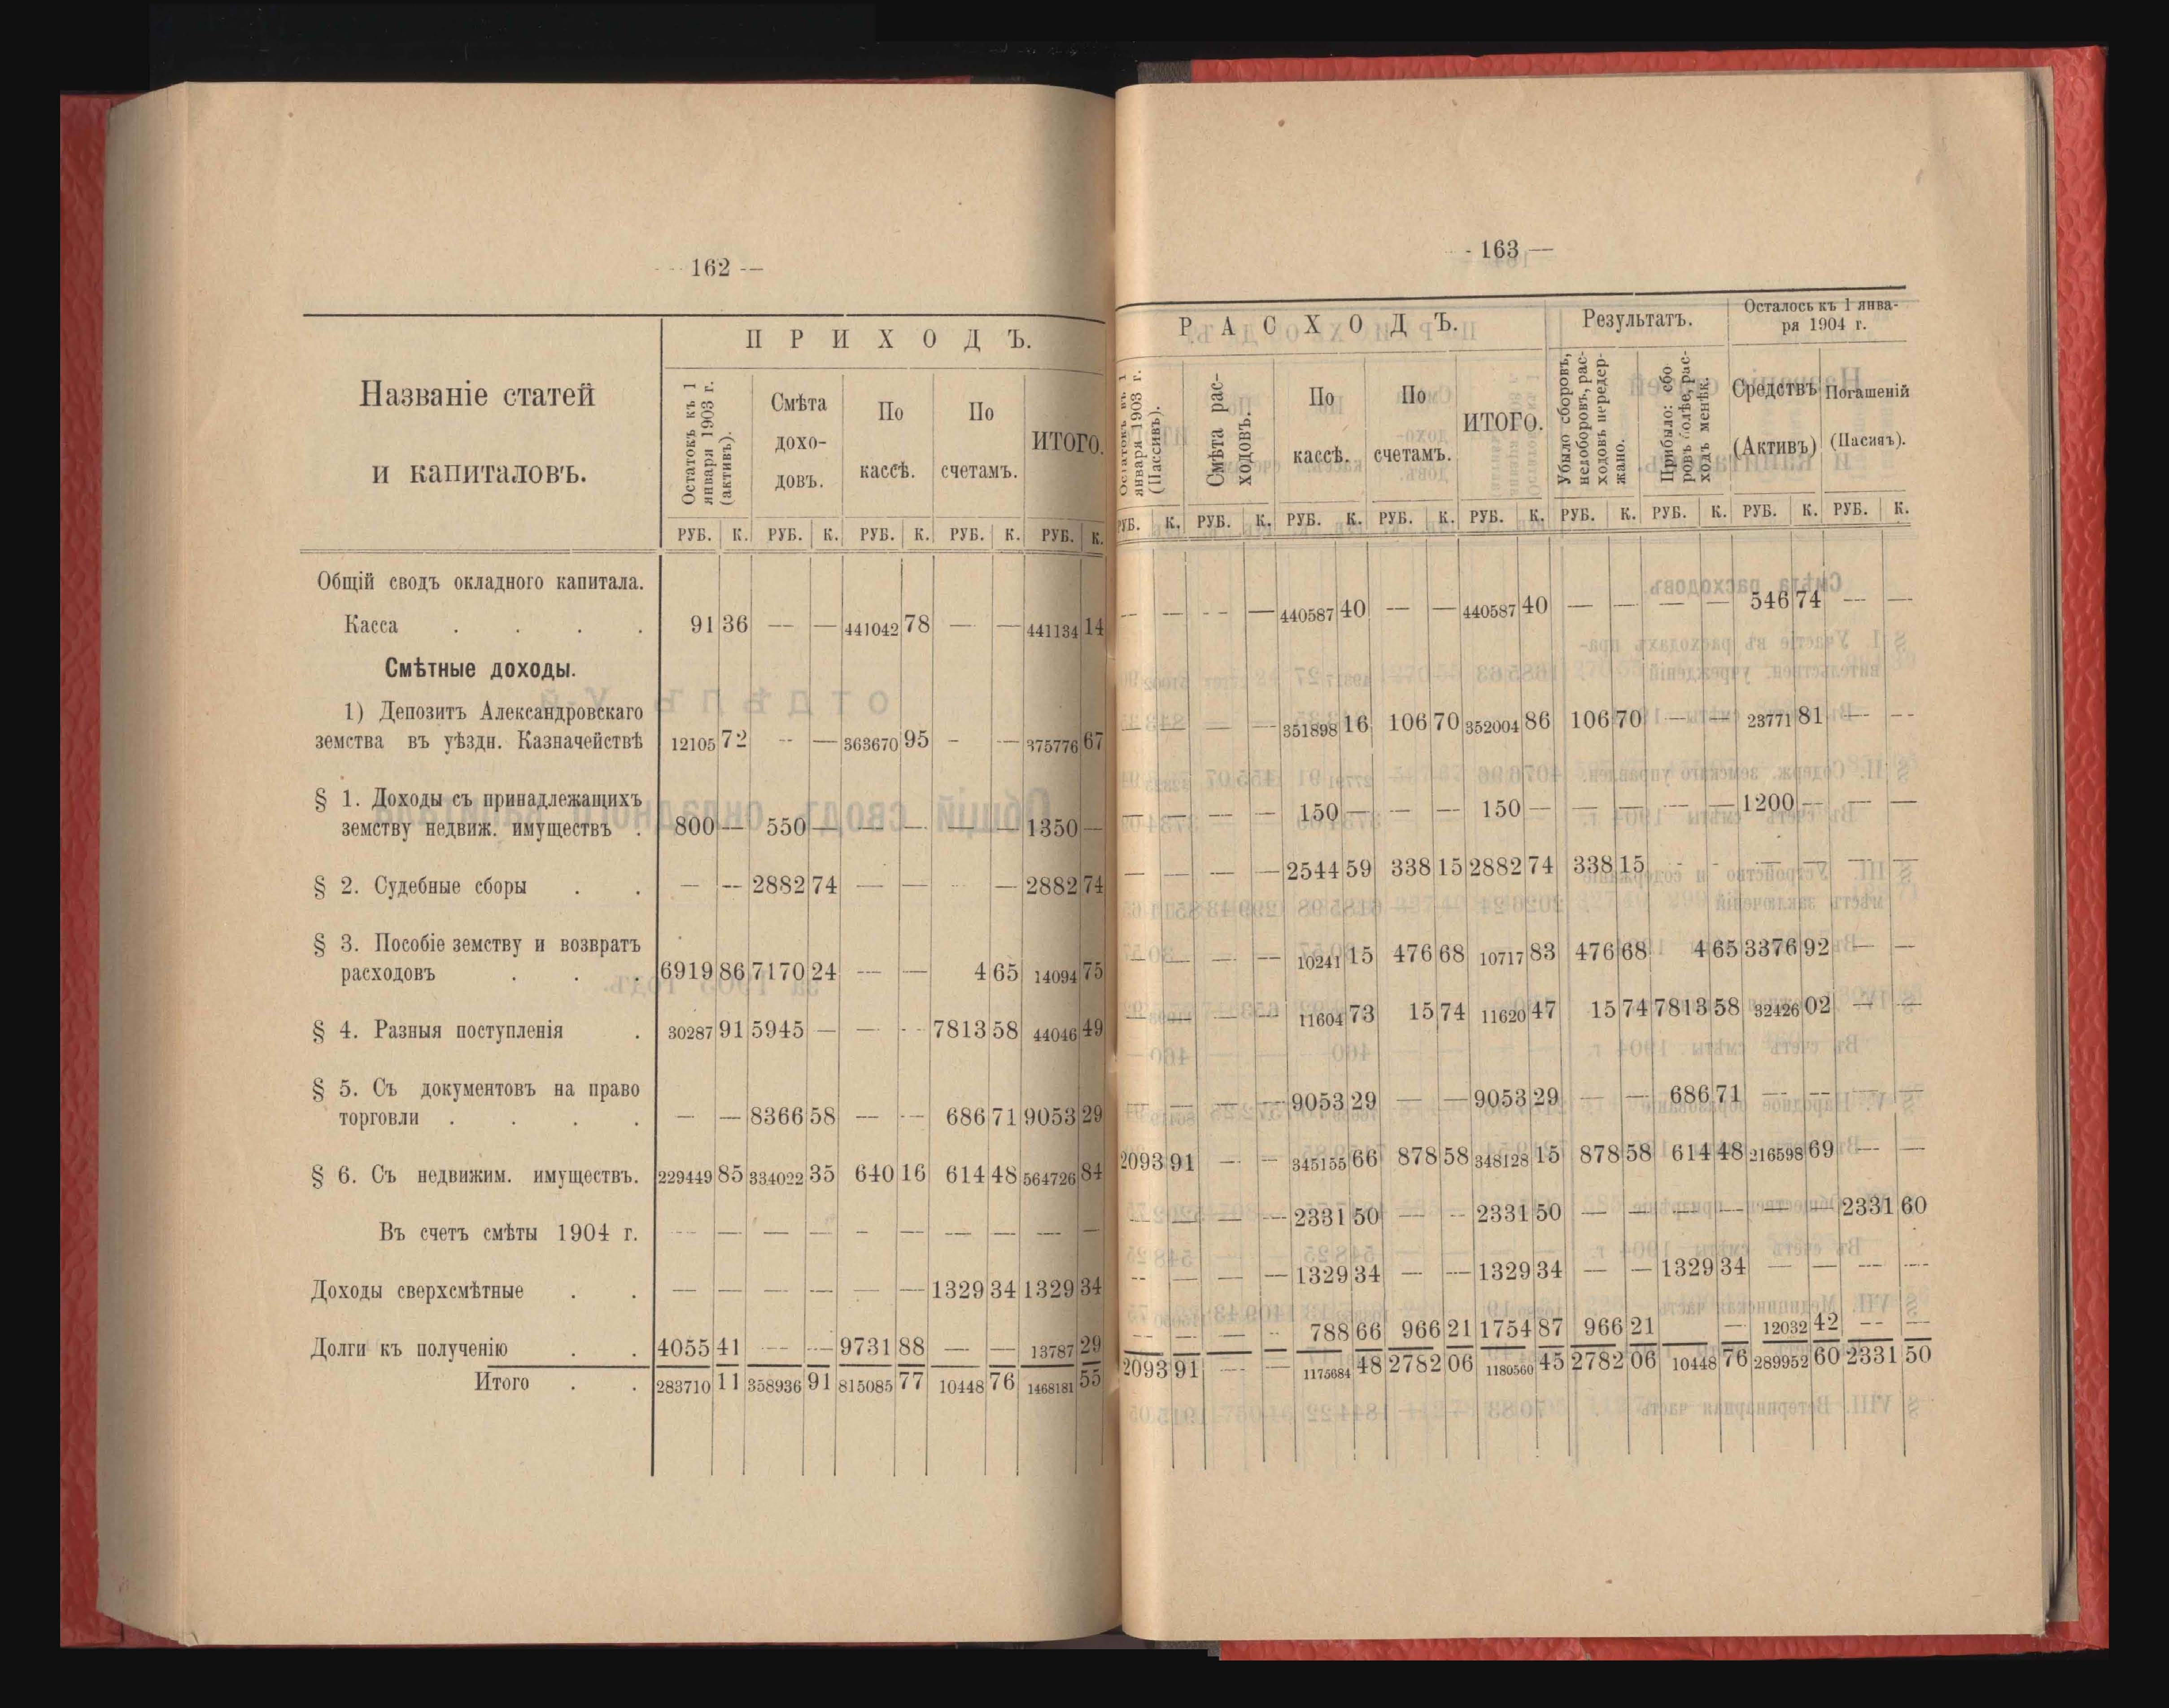 — 162 —
Названіе статей
и капиталовъ.
ПРИХОДЪ.
Остатокъ къ 1
января 1903 г.
(активъ).
Смѣта
дохо-
довъ.
По
кассѣ.
По
счетамъ.
ИТОГО.
РУБ. К. РУБ. К. РУБ. К. РУБ. К. РУБ. К.
Общій сводъ окладного капитала.
Касса . . . . 91 36 — — 441042 78 — — 441134 14
Смѣтные доходы.
1) Депозитъ Александровскаго
земства въ уѣздн. Казначействѣ 12105 72 — — 363670 95 — — 375776 67
§ 1. Доходы съ принадлежащихъ
земству недвиж. имуществъ . 800 — 550 — — — — — 1350 —
§ 2. Судебные сборы . . — — 2882 74 — — — — 2882 74
§ 3. Пособіе земству и возвратъ
расходовъ . . . 6919 86 7170 24 — — 4 65 14094 75
§ 4. Разныя поступленія . 30287 91 5945 — — — 7813 58 44046 49
§ 5. Съ документовъ на право
торговли . . . . — — 8366 58 — — 686 71 9053 29
§ 6. Съ недвижим. имуществъ. 229449 85 334022 35 640 16 614 48 564726 84
Въ счетъ смѣты 1904 г. — — — — — — — — — —
Доходы сверхсмѣтные . . — — — — — — 1329 34 1329 34
Долги къ полученію . . 4055 41 — — 9731 88 — — 13787 29
Итого . . 283710 11 358936 91 815085 77 10448 76 1468181 55
- 163 —
РАСХОДЪ.
Результатъ.
Осталось къ 1 янва-
ря 1904 г.
Остатокъ къ 1
января 1903 г.
(Пассивъ).
Смѣта рас-
ходовъ.
По
кассѣ.
По
счетамъ.
ИТОГО.
Убыло сборовъ,
недоборовъ, рас-
ходовъ передер-
жано.
Прибыло: сбо-
ровъ болѣе, рас-
ходъ менѣе.
Средствъ
(Активъ)
Погашеній
(Пасивъ).
РУБ. К. РУБ. К. РУБ. К. РУБ. К. РУБ. К. РУБ. К. РУБ. К. РУБ. К. РУБ. К.
— — — — 440587 40 — — 440587 40 — — — — 546 74 — —
— — — — 351898 16 106 70 352004 86 106 70 — — 23771 81 — —
— — — — 150 — — — 150 — — — — — 1200 — — —
— — — — 2544 59 338 15 2882 74 338 15 — — — — — —
— — — — 10241 15 476 68 10717 83 476 68 4 65 3376 92 — —
— — — — 11604 73 15 74 11620 47 15 74 7813 58 32426 02 — —
— — — — 9053 29 — — 9053 29 — — 686 71 — — — —
2093 91 — — 345155 66 878 58 348128 15 878 58 614 48 216598 69 — —
— — — — 2331 50 — — 2331 50 — — — — — — 2331 60
— — — — 1329 34 — — 1329 34 — — 1329 34 — — — —
— — — — 788 66 966 21 1754 87 966 21 — 12032 42 — —
2093 91 — — 1175684 48 2782 06 1180560 45 2782 06 10448 76 289952 60 2331 50